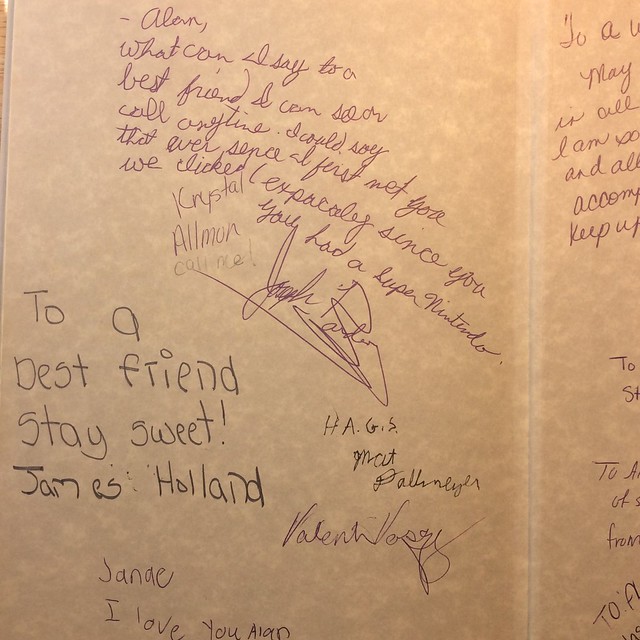 - Alan,
What can I say to a
best friend I can soon
call anytime. I could say
that ever sence I first met you
we clicked (expacaley since you
you had a Super Nintendo.
Krystal
Allmon
call me!
To a
best friend
stay sweet!
James Holland
H.A.G.S.
Mat
Valenti
Jande
I love you Alan
To a
May
in all
I am so
and all
accomp
keep up
To
St
To A
of s
from
To: A